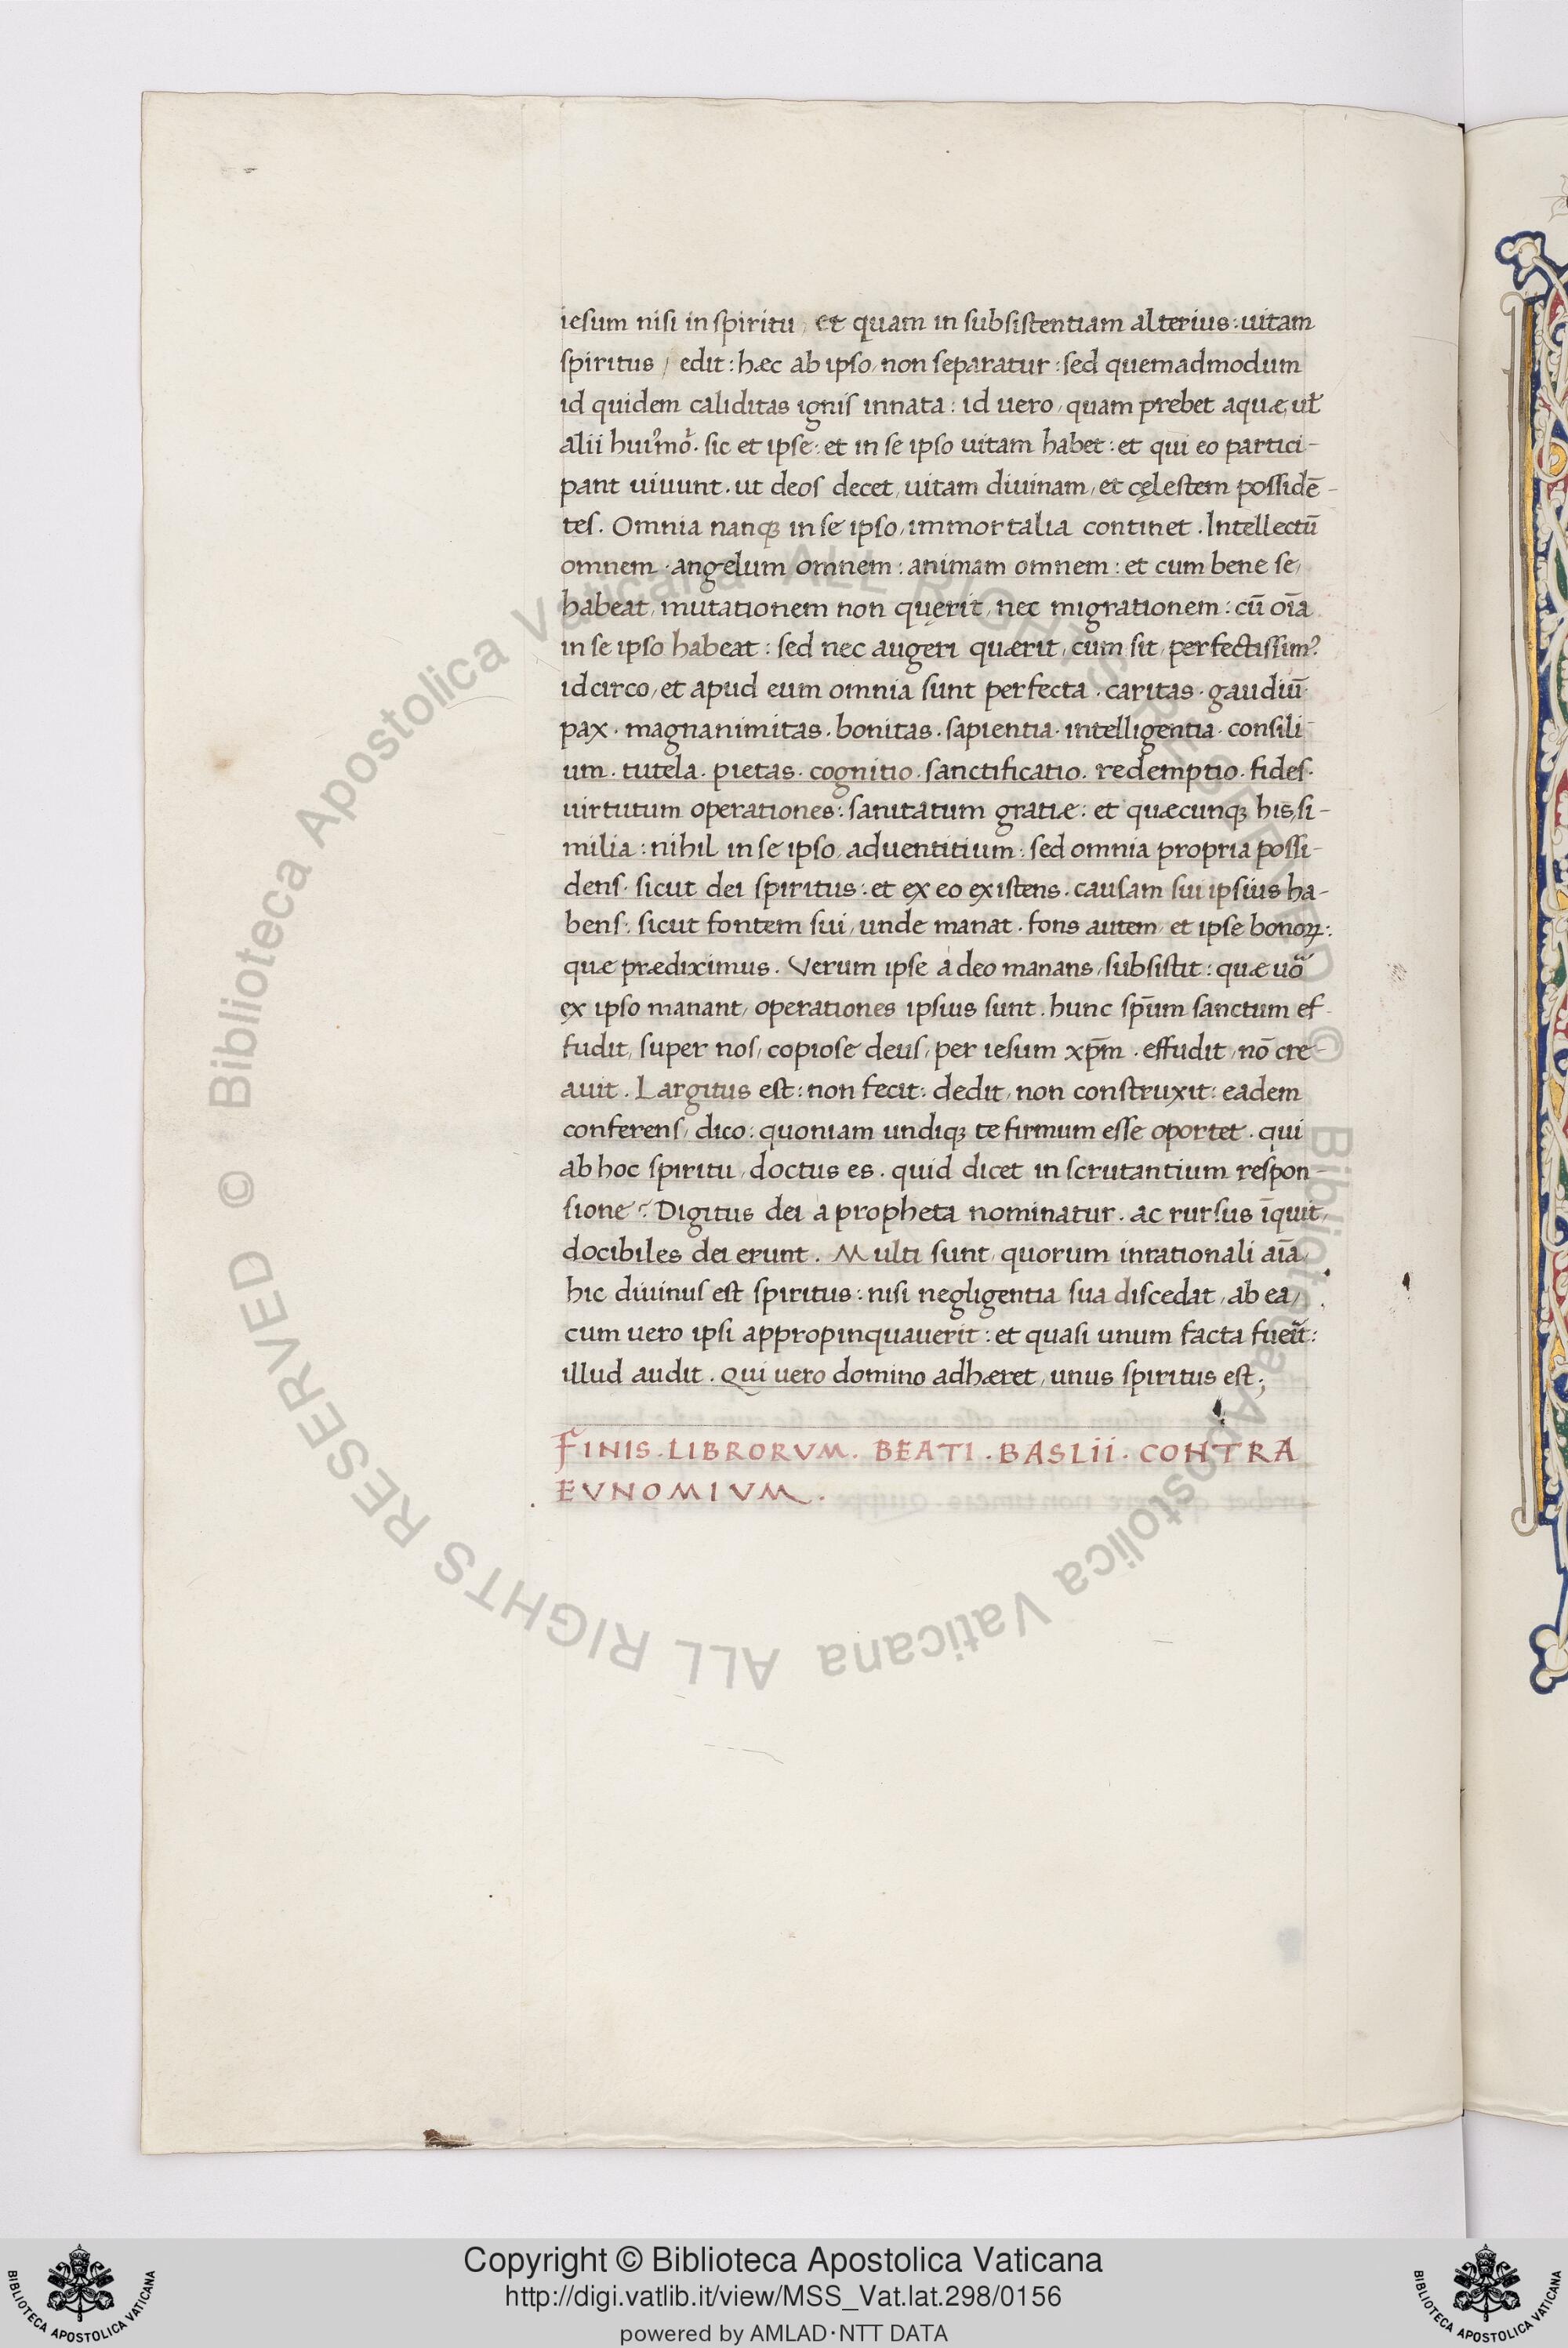 iesum nisi in spiritu, et quam in subsistentiam alterius: uitam
spiritus, edit: hæc ab ipso, non separatur: sed quemadmodum
id quidem caliditas ignis innata: id uero, quam prebet aquæ, ut̄
alii huiꝰmōi. sic et ipse: et in se ipso uitam habet: et qui eo partici-
pant uiuunt. ut deos decet, uitam diuinam, et cęlestem possidē-
tes. Omnia nanqꝫ in se ipso, immortalia continet. Intellectū
omnem. angelum omnem: animam omnem: et cum bene se,
habeat, mutationem non quęrit, nec migrationem: cū oīa
in se ipso habeat: sed nec augeri quærit, cum sit, perfectissimꝰ
idcirco, et apud eum omnia sunt perfecta. caritas. gaudiū.
pax. magnanimitas. bonitas. sapientia. intelligentia. consili-
um. tutela. pietas. cognitio. sanctificatio. redemptio. fides.
uirtutum operationes: sanitatum gratiæ: et quæcunqꝫ his, si-
milia: nihil in se ipso, aduentitium: sed omnia propria possi-
dens. sicut dei spiritus: et ex eo existens. causam sui ipsius ha-
bens: sicut fontem sui, unde manat. fons autem, et ipse bonoꝝ:
quæ prædiximus. Verum ipse a deo manans, subsistit: quæ uō
ex ipso manant, operationes ipsius sunt. hunc sp̄um sanctum ef-
fudit, super nos, copiose deus, per iesum xp̄m. effudit, nō cre-
auit. Largitus est: non fecit: dedit, non construxit: eadem
conferens, dico: quoniam undiqꝫ te firmum esse oportet. qui
ab hoc spiritu, doctus es. quid dicet in scrutantium respon-
sione? Digitus dei a propheta nominatur. ac rursus īquit,
docibiles dei erunt. Multi sunt, quorum inrationali aīa,
hic diuinus est spiritus: nisi negligentia sua discedat, ab ea,
cum uero ipsi appropinquauerit: et quasi unum facta fueīt:
illud audit. Qui uero domino adhæret, unus spiritus est;
FINIS. LIBRORVM. BEATI. BASLII. CONTRA
EVNOMIVM.
© Biblioteca Apostolica Vaticana ALL RIGHTS RESERVED © Biblioteca Apostolica Vaticana ALL RIGHTS RESERVED
Copyright © Biblioteca Apostolica Vaticana
http://digi.vatlib.it/view/MSS_Vat.lat.298/0156
powered by AMLAD·NTT DATA
BIBLIOTECA APOSTOLICA VATICANA
BIBLIOTECA APOSTOLICA VATICANA